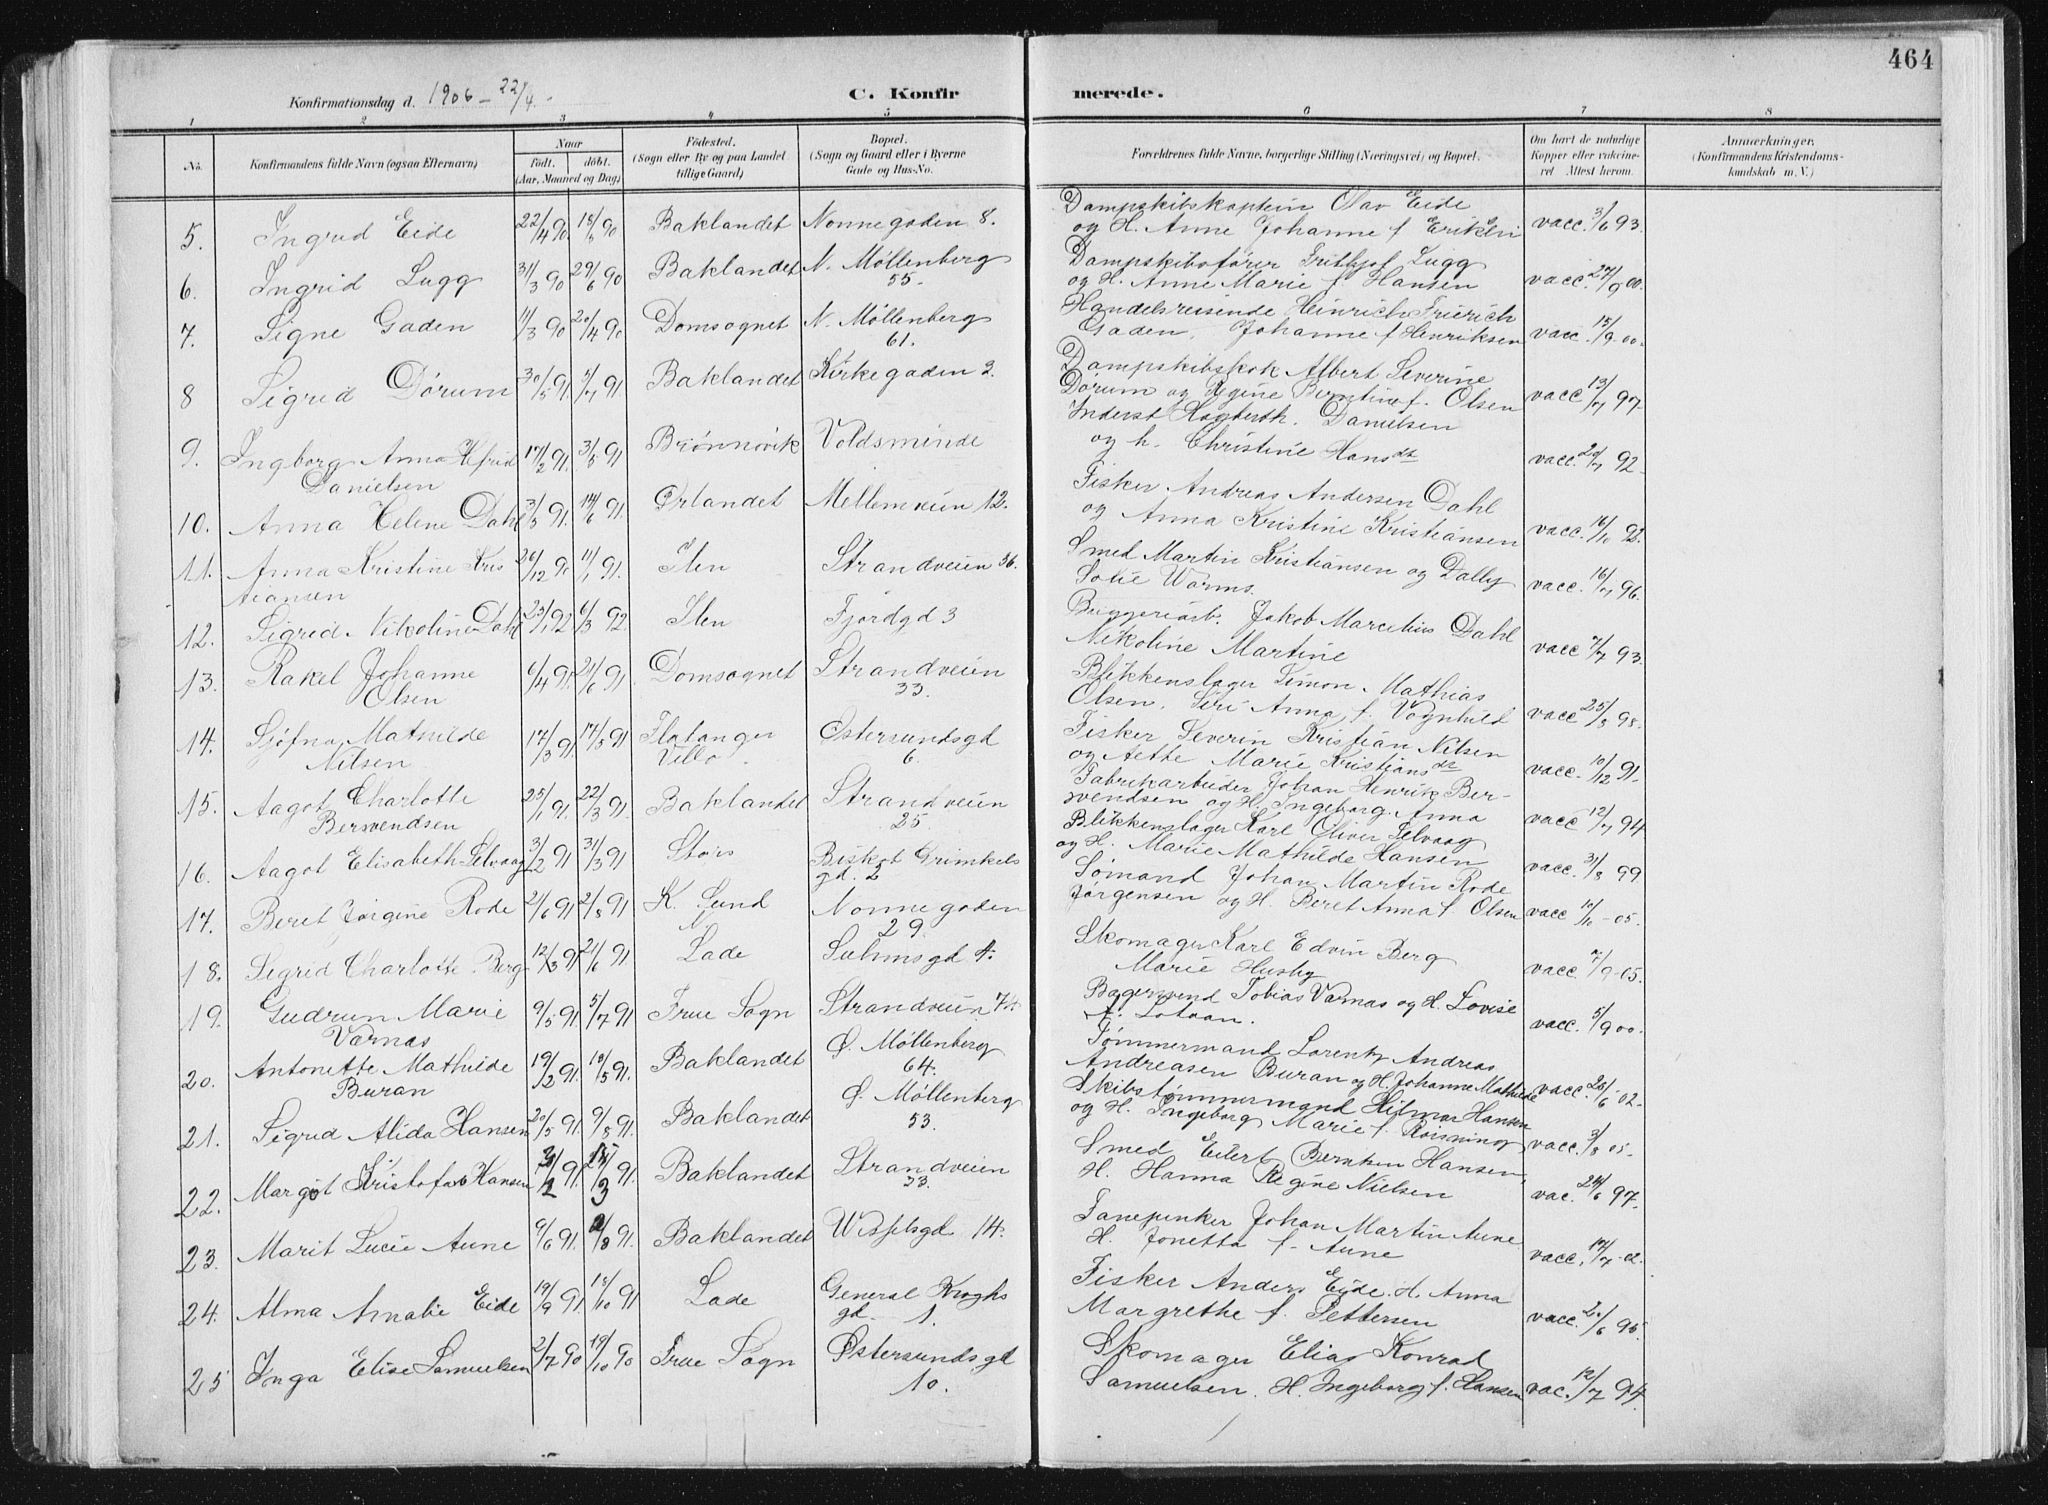 464
Konfirmationsdag d. 1906 - 22/4 -
C. Konfirmerede.
1 2 3 4 5 6 7 8
No. Konfirmandens fulde Navn (ogsaa Efternavn) Naar født. døbt. (Aar, Maaned og Dag) Fødested. (Sogn eller By og paa Landet tillige Gaard) Bopæl. (Sogn og Gaard eller i Byerne Gade og Hus-No. Forældrenes fulde Navne, borgerlige Stilling (Næringsvei) og Bopæl. Om havt de naturlige Kopper eller vakcineret Attest herom. Anmærkninger. (Konfirmandens Kristendomskundskab m. V.)
5. Ingrid Eide 22/4 90. 18/5 90 Baklandet Nonnegaden 8. Dampskibskaptein Olav Eide
og H. Anne Johanne f. vacc. 3/6 93.
6. Ingrid Lugg 31/3 90 29/6 90 Baklandet N. Møllenberg 55. Dampskibsfører Frithjof Lugg
og H. Anne Marie f. Hansen vacc. 27/9 00.
7. Signe Gaden 11/3 90 20/4 90 Domsognet N. Møllenberg 61. Handelsreisende Heinrich Frierich
Gaden, Johanne f. Henriksen vacc. 15/9 00.
8 Sigrid Dørum 30/5 91. 5/7 91 Baklandet Kirkegaden 2. Dampskibskok Albert Severine
Dørum og Regine Berntine f. Olsen vacc 13/7 97.
9. Ingborg Anna
Danielsen 17/2 91. 3/5 91 Brønnøvik Voldsminde Inderst Danielsen
og h. Christine Hansdt vacc. 20/7 92
10. Anna Helene Dahl 3/3 91. 14/6 91. Ørlandet Mellemveien 12. Fisker Andreas Andersen Dahl
og Anna Kristine Kristiansen vacc. 16/10 92.
11. Anna Kristine Kris
tiansen 26/12 90 11/1 91. Ilen Strandveien 36. Smed Martin Kristiansen og Dalby
Sofie Worms. vacc. 16/7 96.
12. Sigrid Nikoline Dahl 23/1 92 6/3 92. Ilen Fjordgd 3 Bryggeriarb. Jakob Marcelius Dahl
Nikoline Martine vacc 7/7 93.
13. Rakel Johanne
Olsen 6/4 91. 21/6 91. Domsognet Strandveien 33. Blikkenslager Simon Mathias
Olsen, Anna f. Vognhild vacc 25/8 98.
14. Sjøfna Mathilde
Nilsen 17/3 91. 17/5 91 Flatanger Østersundsgd 6. Fisker Severin Kristian Nilsen
og Marie Kristiansdt vacc. 10/12 91.
15. Aagot Charlotte
Bersvendsen 25/1 91. 22/3 91 Baklandet Strandveien 25. Fabrikarbeider Johan Henrik Ber-
svendsen og H. Ingeborg Anna vacc 12/7 94
16. Aagot Elisabeth Selvaag 3/2 91 31/3 91 Størs Biskop Grimkels gd. 2 Blikkenslager Karl Oliver Selvaag
og H. Marie Mathilde Hansen vacc 31/8 99
17. Beret Jørgine Rode 21/6 91 2/8 91 K. Sund N. Nonnegaden 29. Sømand Johan Martin Rode
Jørgensen og H. Beret Anna f. Olsen vacc 10/10 -05.
18. Sigrid Charlotte Berg 12/3 91 21/6 91. Lade Suhmsgd 4. Skomager Karl Edvin Berg
Marie Husby vacc. 7/9-05.
19. Gudrun Marie
Varnæs 9/5 91. 5/7 91 Frue Sogn Strandveien 74. Bagersvend Tobias Varnæs og H. Lovise
f. vacc. 5/9 00.
20. Antonette Mathilde
Buran 19/2 91. 18/5 91. Baklandet Ø. Møllenberg 64. Tømmermand Lorentz Andreas
Andreasen Buran og H. Johanne Mathilde vacc. 28/6 02-
21. Sigrid Alida Hansen 20/5 91. 9/8 91. Baklandet Ø. Møllenberg 53. Skibstømmermand Hilmar Hansen
og H. Ingeborg Marie f. vacc 3/8 05-
22. Margot Kristofa Hansen 91. 91. Baklandet Strandveien 33. Smed Eilert Berntzen Hansen,
H. Hanna Regine Nielsen vac. 24/6 97.
23. Marit Lucie Aune 9/6 91. 2/8 91. Baklandet Wesselsgd 14. Johan Martin Aune
H. Jonetta f. Aune vacc. 17/7-02.
24. Alma Amalie Eide 19/9 91 18/10 91 Lade General Kroghs gd. 1. Fisker Anders Eide. H. Anna
Margrethe f. Pettersen vacc. 20/6 95
25 Inga Elise Samuelsen 2/7 90 19/10 90 Frue Sogn Østersundsgd 10. Skomager Elias Konrad
Samuelsen. H. Ingeborg f. Hansen vac. 12/7 94.